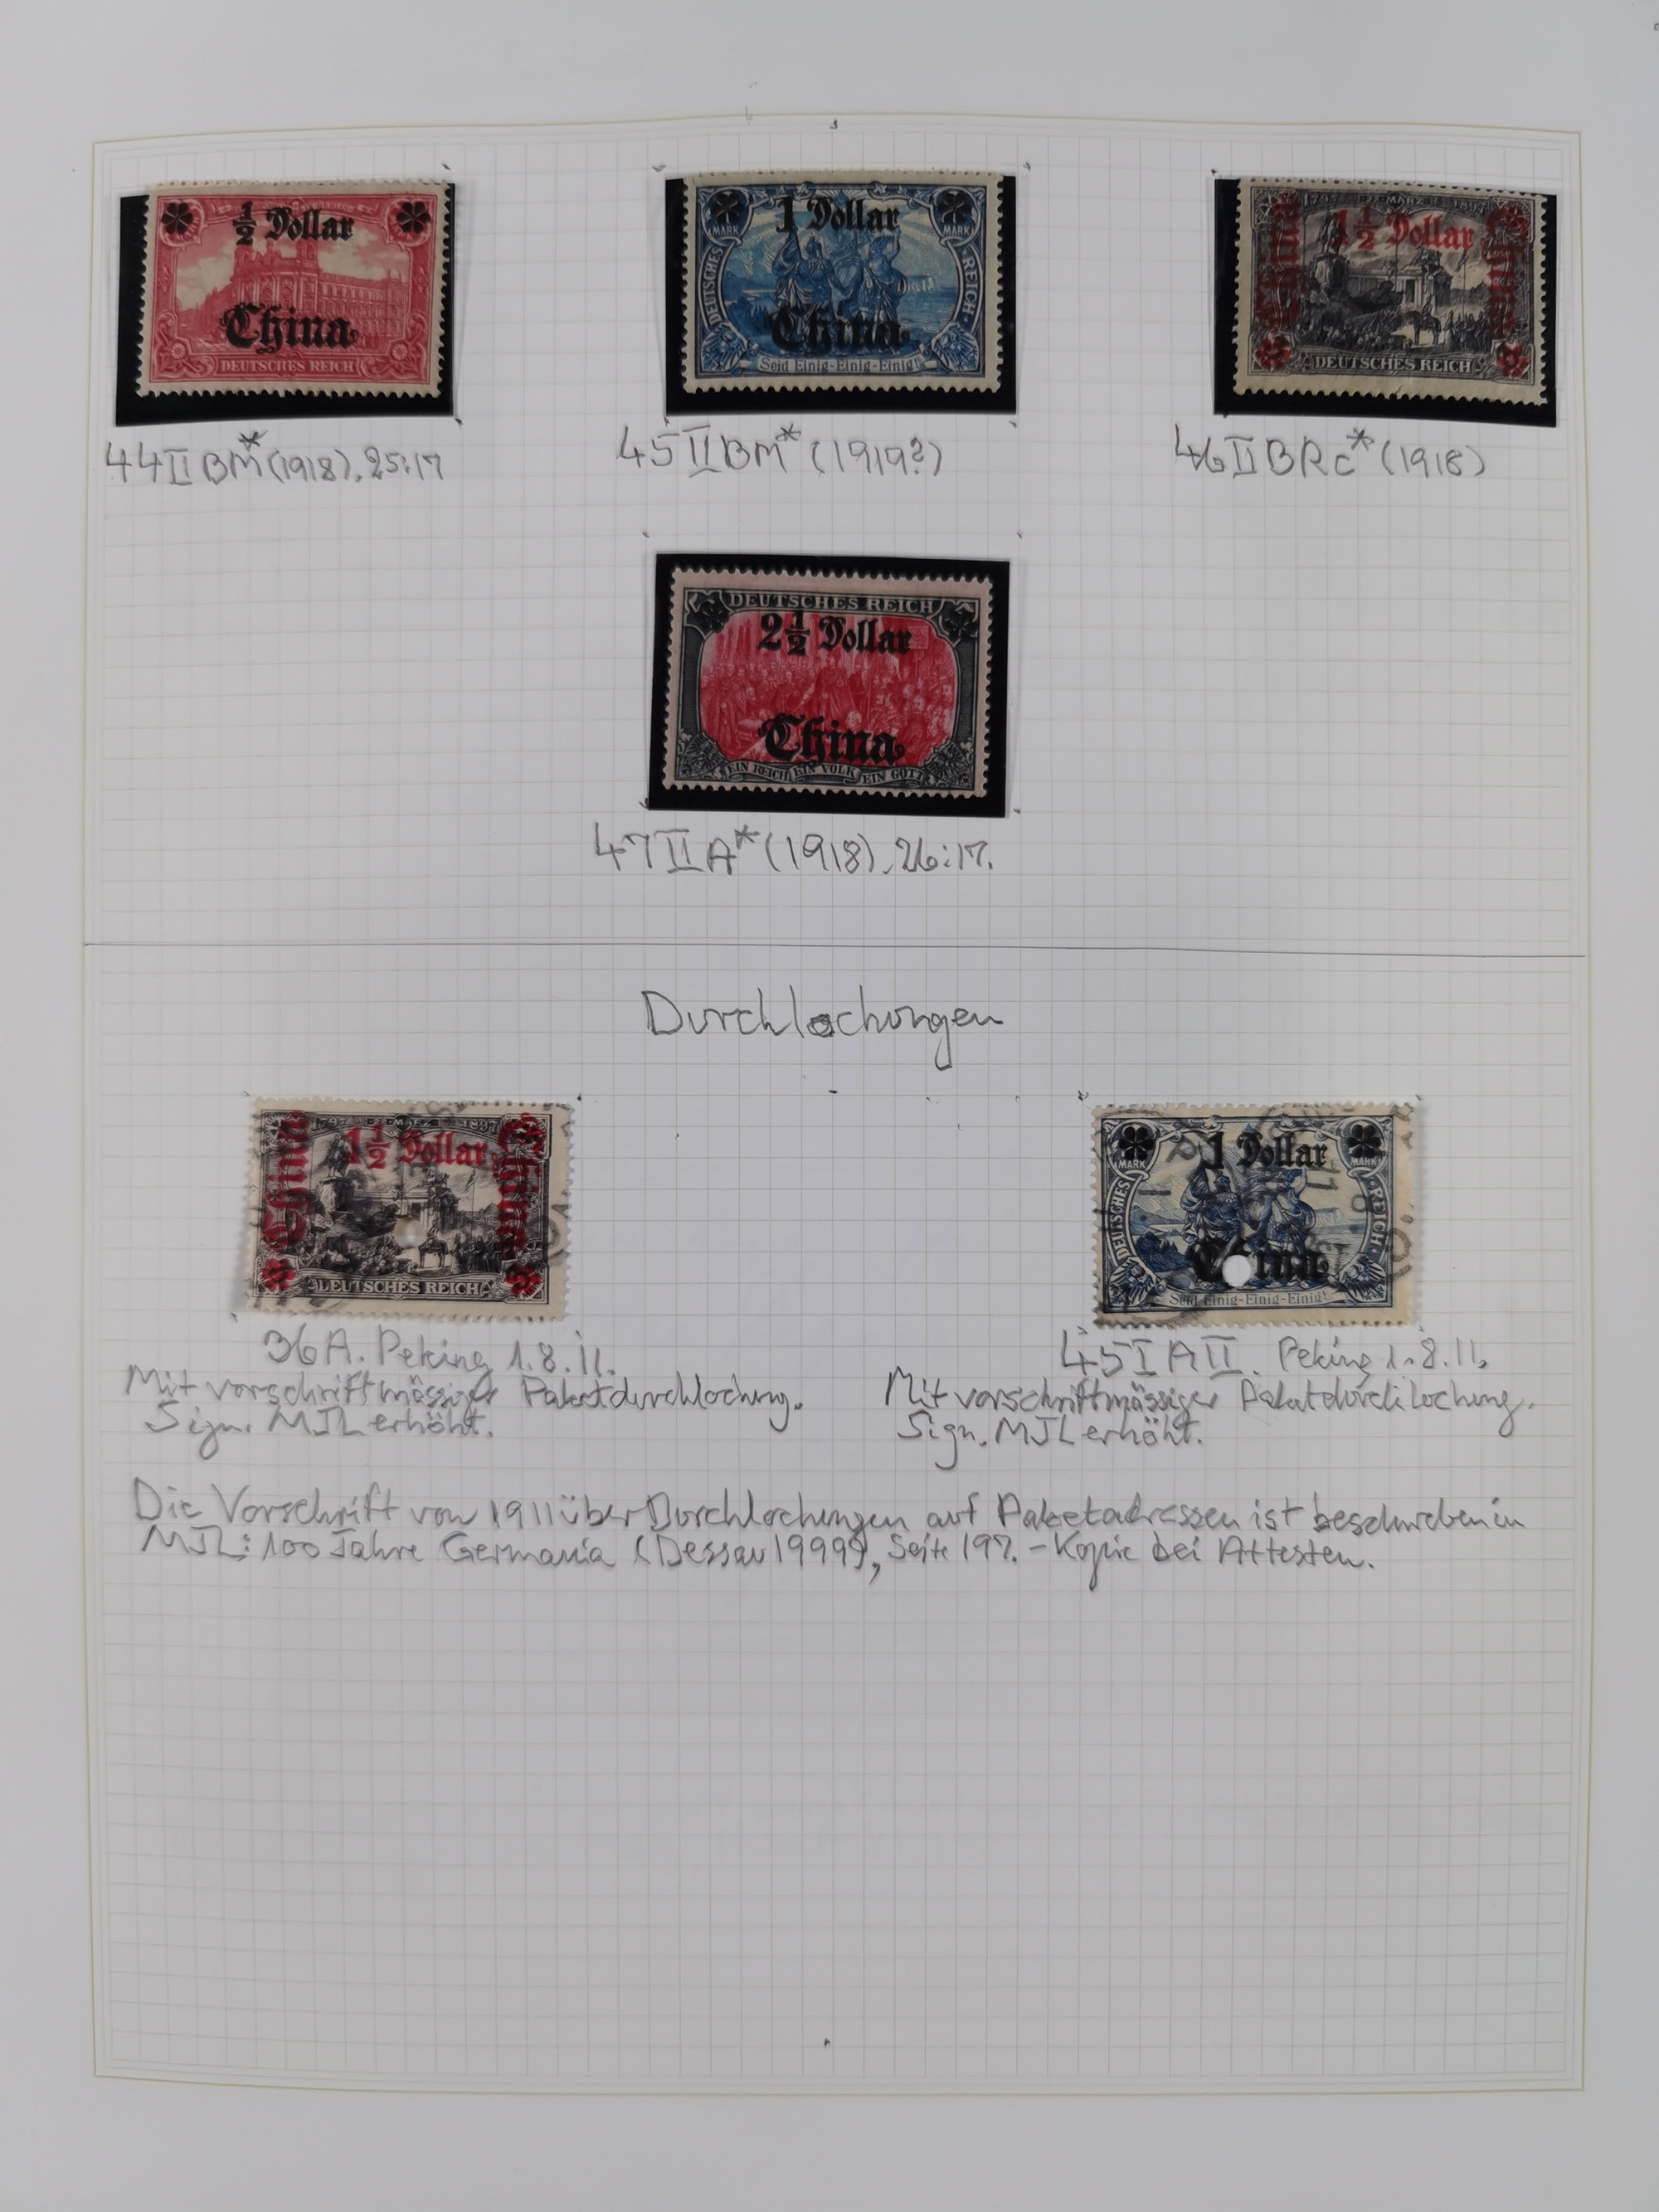 ½ Dollar
China
DEUTSCHES REICH
1 Dollar
MARK MARK
DEUTSCHES REICH
China
Seid Einig-Einig-Einig!
1797 22 MÄRZ 1897
China 1½ Dollar China
DEUTSCHES REICH
44 II BM* (1918). 25:17
45 II BM* (1919?)
46 II BRc* (1918)
DEUTSCHES REICH
2½ Dollar
China
EIN REICH EIN VOLK EIN GOTT
47 II A* (1918). 26:17.
Durchlochungen
1797 22 MÄRZ 1897
China 1½ Dollar China
DEUTSCHES REICH
1 Dollar
MARK MARK
DEUTSCHES REICH
China
Seid Einig-Einig-Einig!
36A. Peking 1.8.11.
Mit vorschriftmässiger Paketdurchlochung.
Sign. MJL erhöht.
45 I A II. Peking 1.8.11.
Mit vorschriftmässiger Paketdurchlochung.
Sign. MJL erhöht.
Die Vorschrift von 1911 über Durchlochungen auf Paketadressen ist beschrieben in
MJL: 100 Jahre Germania (Dessau 1999), Seite 197. - Kopie bei Attesten.